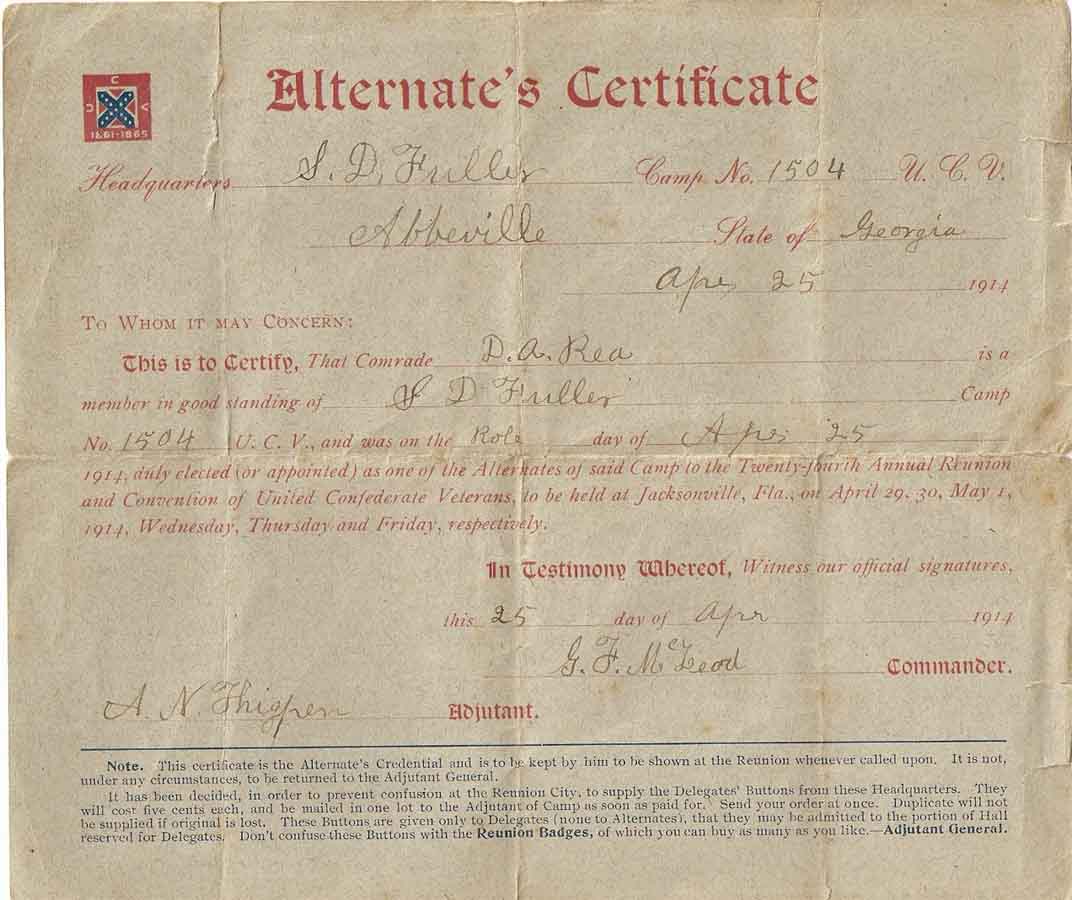 U C V
1861-1865
Alternate's Certificate
Headquarters S. D. Fuller Camp No. 1504 U. C. V.
Abbeville State of Georgia
Apr 25 1914
TO WHOM IT MAY CONCERN:
This is to Certify, That Comrade D. A. Rea is a
member in good standing of S D Fuller Camp
No. 1504 U. C. V., and was on the day of Apr 25
1914, duly elected (or appointed) as one of the Alternates of said Camp to the Twenty-fourth Annual Reunion
and Convention of United Confederate Veterans, to be held at Jacksonville, Fla., on April 29, 30, May 1,
1914, Wednesday, Thursday and Friday, respectively.
In Testimony Whereof, Witness our official signatures,
this 25 day of Apr 1914
G. F. McLeod Commander.
A. N. Thigpen Adjutant.
Note. This certificate is the Alternate's Credential and is to be kept by him to be shown at the Reunion whenever called upon. It is not,
under any circumstances, to be returned to the Adjutant General.
It has been decided, in order to prevent confusion at the Reunion City, to supply the Delegates' Buttons from these Headquarters. They
will cost five cents each, and be mailed in one lot to the Adjutant of Camp as soon as paid for. Send your order at once. Duplicate will not
be supplied if original is lost. These Buttons are given only to Delegates (none to Alternates), that they may be admitted to the portion of Hall
reserved for Delegates. Don't confuse these Buttons with the Reunion Badges, of which you can buy as many as you like.—Adjutant General.